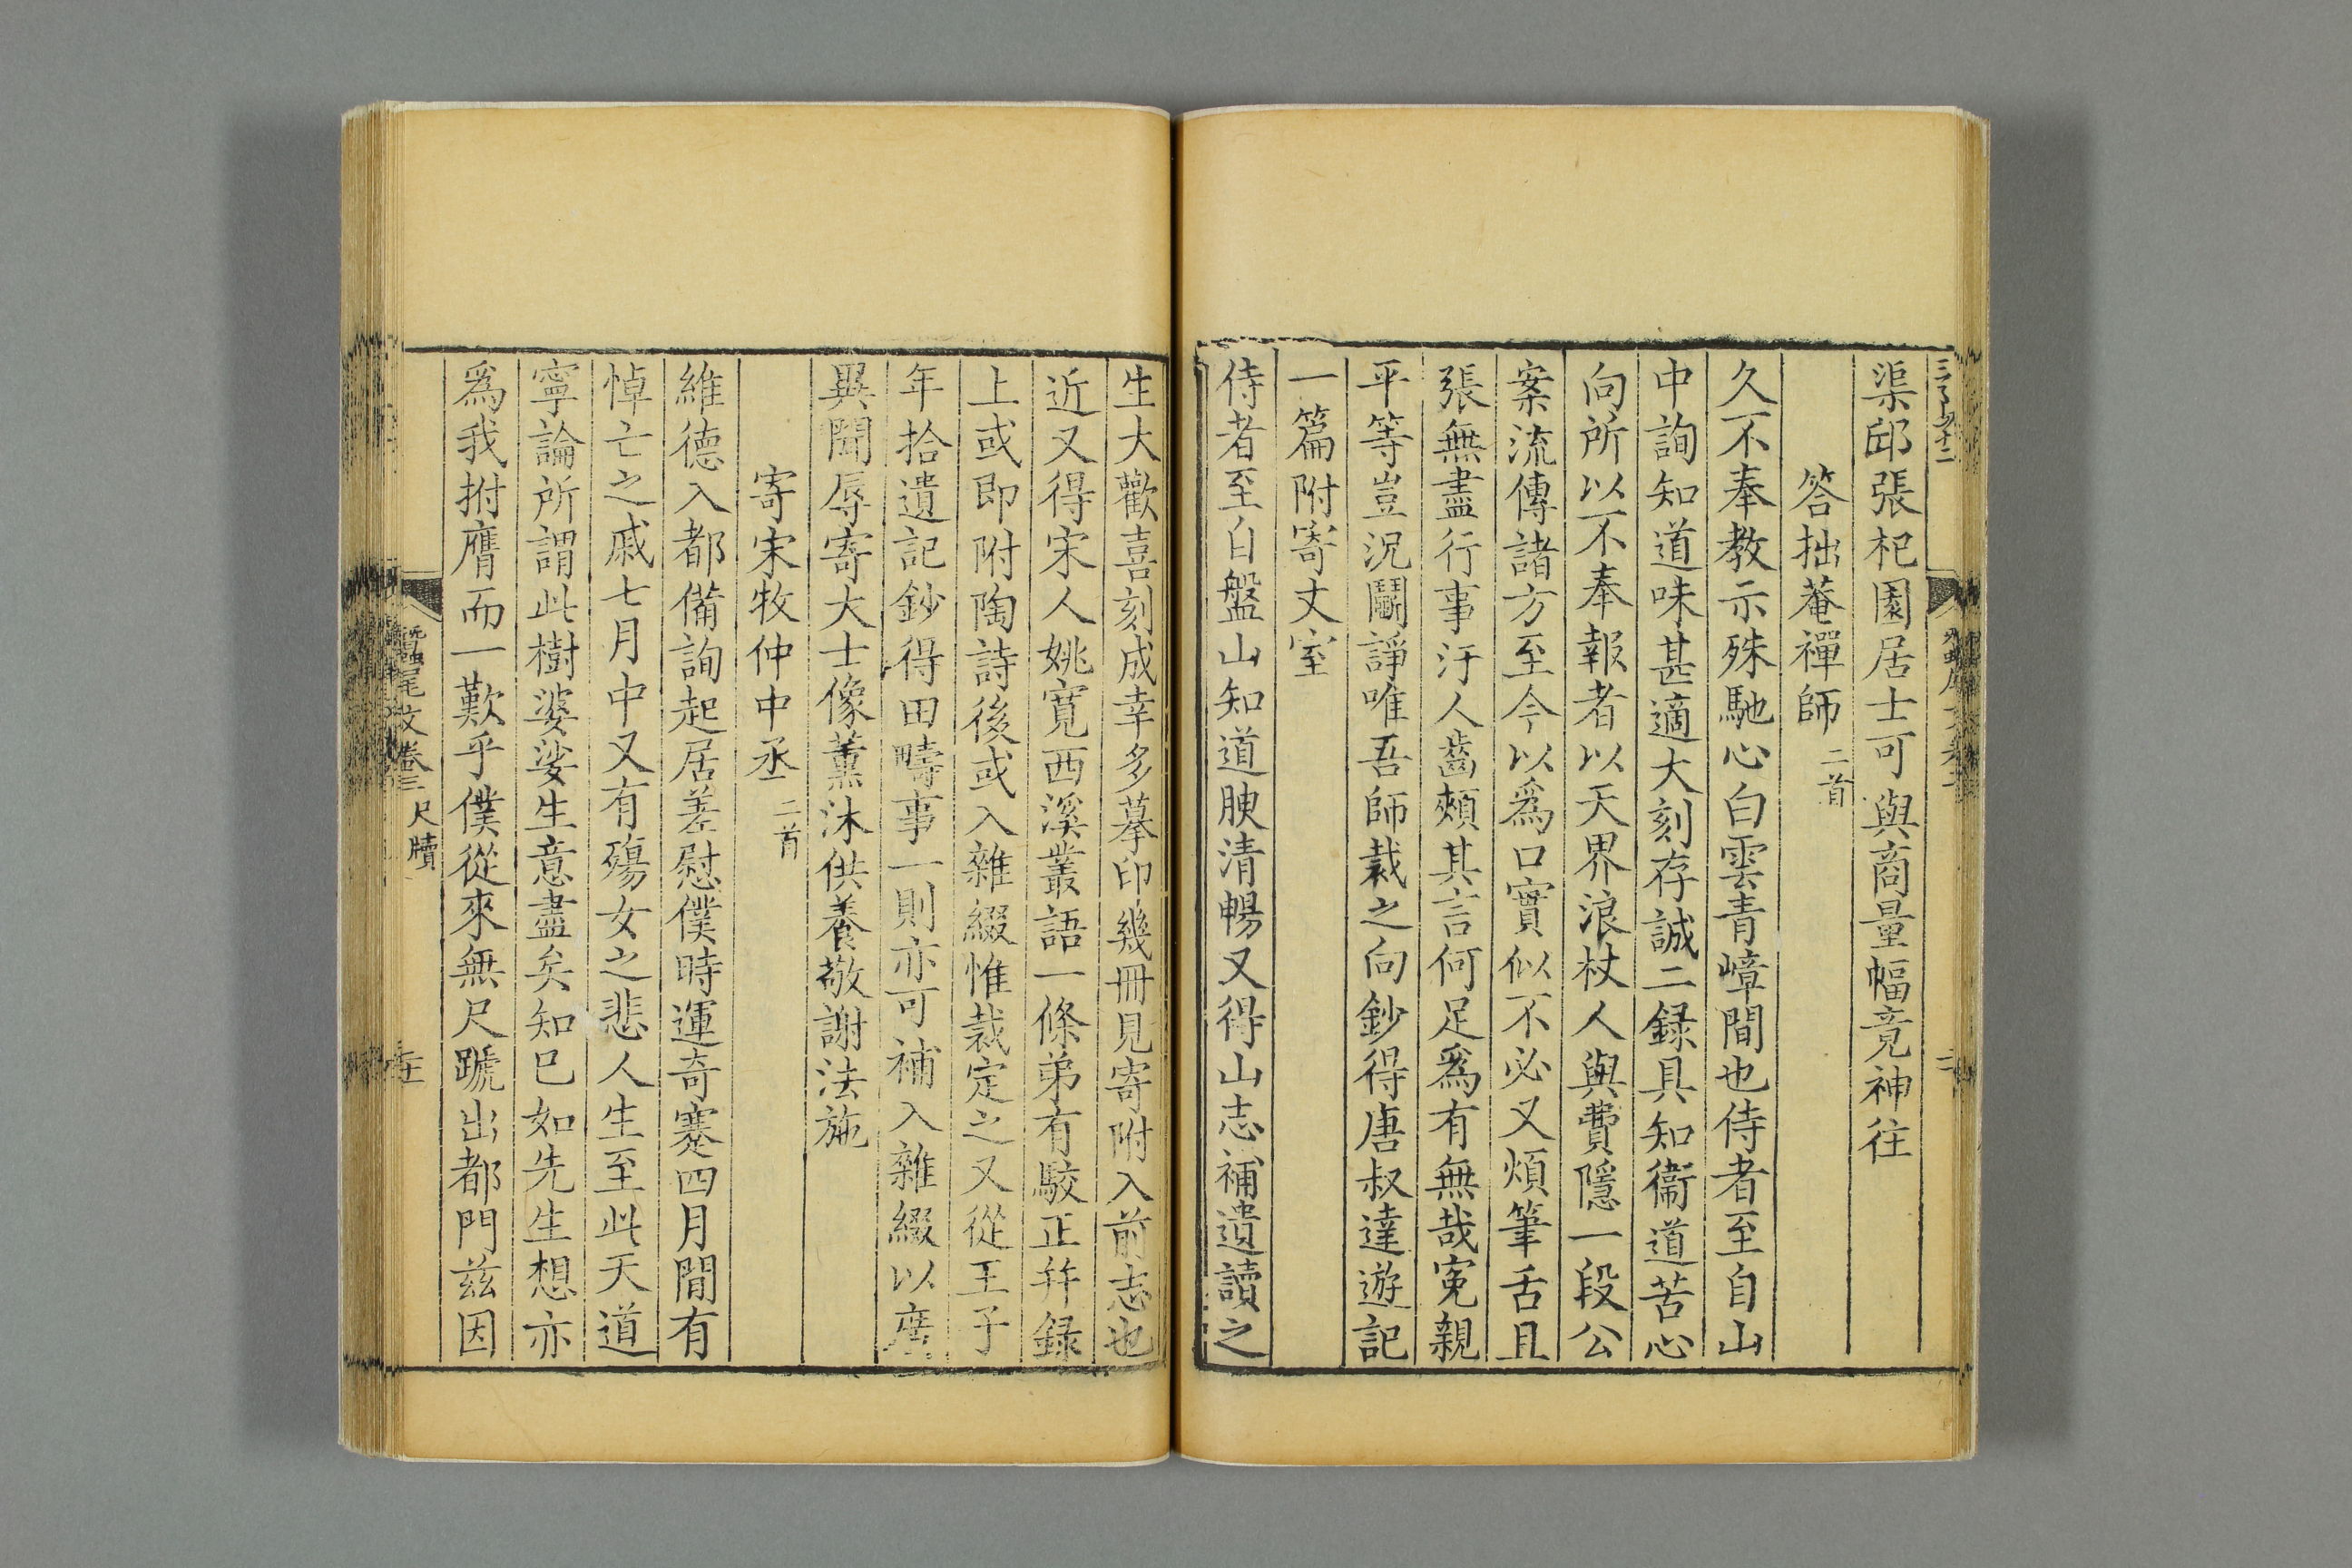 渠邱張杞園居士可與商量幅竟神往
答拙菴禪師二首
久不奉教示殊馳心白雲青嶂間也侍者至自山
中詢知道味甚適大刻存誠二録具知衞道苦心
向所以不奉報者以天界浪杖人與費隱一段公
案流傳諸方至今以爲口實似不必又煩筆舌且
張無盡行事汙人齒頰其言何足爲有無哉寃親
平等豈況鬭諍唯吾師裁之向鈔得唐叔達遊記
一篇附寄丈室
侍者至自盤山知道腴清暢又得山志補遺讀之
生大歡喜刻成幸多摹印幾冊見寄附入前志也
近又得宋人姚寛西溪叢語一條弟有駮正幷録
上或即附陶詩後或入雜綴惟裁定之又從王子
年拾遺記鈔得田疇事一則亦可補入雜綴以廣
異聞辱寄大士像薰沐供養敬謝法施
寄宋牧仲中丞二首
維德入都備詢起居差慰僕時運奇蹇四月間有
悼亡之戚七月中又有殤女之悲人生至此天道
寧論所謂此樹婆娑生意盡矣知巳如先生想亦
爲我拊膺而一歎乎僕從來無尺蹏出都門兹因
蠶尾文卷三 尺牘